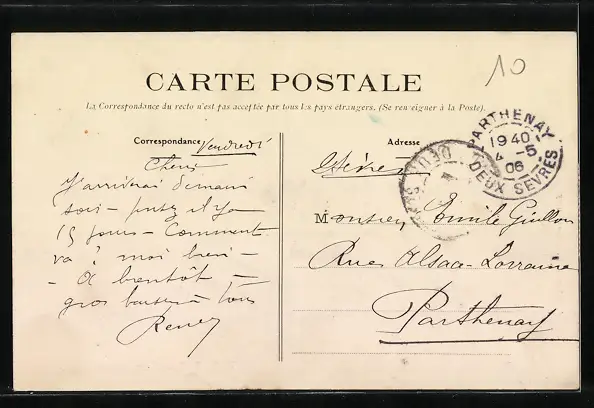 10
CARTE POSTALE
La Correspondance du recto n'est pas acceptée par tous les pays étrangers. (Se renseigner à la Poste).
Correspondance
Vendredi
Adresse
PARTHENAY
19 40
4 -5
06
DEUX SEVRES
J'arriverai demain
soir
15 jours - Comment
va ? moi bien -
- A bientôt -
gros baisers à tous
Renée
2 Sèvres
Monsieur Emile Guillon
Rue Alsace-Lorraine
Parthenay